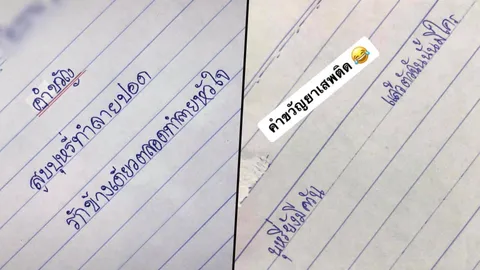 คำขวัญ
สูบบุหรี่ทำลายปอด
รักข้างเดียวตลอดทำลายหัวใจ
คำขวัญยาเสพติด😂
บุหรี่ยังมีควัน
แล้วตัวฉันนั้นมีใคร